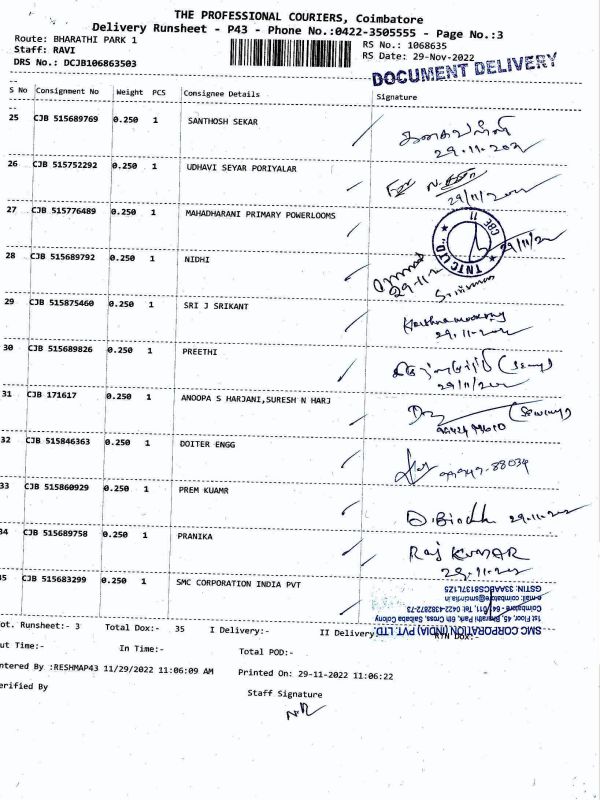 THE PROFESSIONAL COURIERS, Coimbatore
Delivery Runsheet - P43 - Phone No.:0422-3505555 - Page No.:3
Route: BHARATHI PARK 1
RS No.: 1068635
Staff: RAVI
RS Date: 29-Nov-2022
DRS No.: DCJB106863503
DOCUMENT DELIVERY
S No Consignment No Weight PCS Consignee Details Signature
25 CJB 515689769 0.250 1 SANTHOSH SEKAR
29.11.202
26 CJB 515752292 0.250 1 UDHAVI SEYAR PORIYALAR
For
29/11/202
27 CJB 515776489 0.250 1 MAHADHARANI PRIMARY POWERLOOMS
TNTC LTD CBE 11
29/11/20
28 CJB 515689792 0.250 1 NIDHI
29.11.2
29 CJB 515875460 0.250 1 SRI J SRIKANT
Krishnamoorthy
29.11.202
30 CJB 515689826 0.250 1 PREETHI
29/11/202
31 CJB 171617 0.250 1 ANOOPA S HARJANI,SURESH N HARJ
32 CJB 515846363 0.250 1 DOITER ENGG
99949-88034
33 CJB 515860929 0.250 1 PREM KUAMR
29.11.202
34 CJB 515689758 0.250 1 PRANIKA
Raj KUMAR
29.11.202
35 CJB 515683299 0.250 1 SMC CORPORATION INDIA PVT
SMC CORPORATION (INDIA) PVT. LTD
1st Floor, 45, Bharathi Park, 6th Cross, Saibaba Colony
Coimbatore - 641 011, Tel: 0422-4382872-73
e.mail: coimbatore@smcindia.in
GSTIN: 33AABCS8137L1Z5
Tot. Runsheet:- 3 Total Dox:- 35 I Delivery:- II Delivery RTN Dox:-
Out Time:- In Time:- Total POD:-
Entered By :RESHMAP43 11/29/2022 11:06:09 AM Printed On: 29-11-2022 11:06:22
Verified By Staff Signature